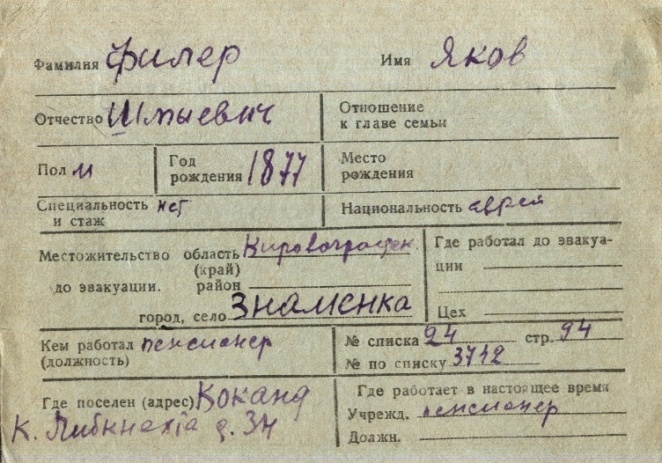 Фамилия Филер Имя Яков
Отчество Шмыевич Отношение
к главе семьи
Пол м Год
рождения 1877 Место
рождения
Специальность нет
и стаж Национальность еврей
Местожительство область Кировоград.
(край)
до эвакуации. район
город, село Знаменка
Где работал до эвакуа-
ции
Цех
Кем работал пенсионер
(должность)
№ списка 24 стр. 94
№ по списку 3742
Где поселен (адрес) Коканд
К. Либкнехта д. 34
Где работает в настоящее время
Учрежд. пенсионер
Должн.